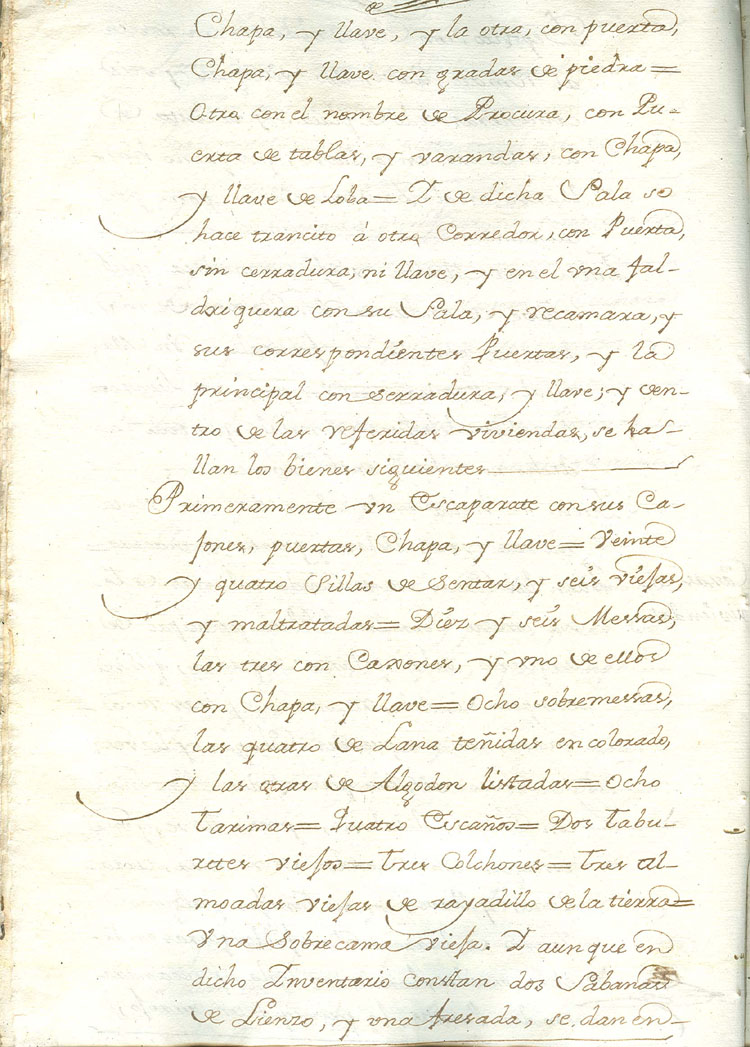 Chapa, y llave, y la otra, con puerta,
Chapa, y llave con gradas de piedra=
Otra con el nombre de Procura, con Pu-
erta de tablas, y varandas, con Chapa,
y llave de Loba= Y de dicha Sala se
hace trancito á otro Corredor, con Puerta,
sin cerradura, ni llave, y en el vna fal-
driquera con su Sala, y recamara, y
sus correspondientes Puertas, y la
principal con serradura, y llave; y den-
tro de las referidas viviendas, se ha-
llan los bienes siguientes
Primeramente vn Escaparate con sus Ca-
jones, puertas, Chapa, y llave= Veinte
y quatro Sillas de Sentar, y seis viejas,
y maltratadas= Diez y seis Messas,
las tres con Caxones, y uno de ellos
con Chapa, y llave= Ocho sobremessas,
las quatro de Lana teñidas en colorado,
y las otras de Algodon listadas= Ocho
Tarimas= Quatro Escaños= Dos Tabu-
retes viejos= Tres Colchones= Tres al-
moadas viejas de rayadillo de la tierra=
Vna Sobrecama vieja. Y aunque en
dicho Inventario constan dos Sabanas
de Lienzo, y vna fresada, se dan en-